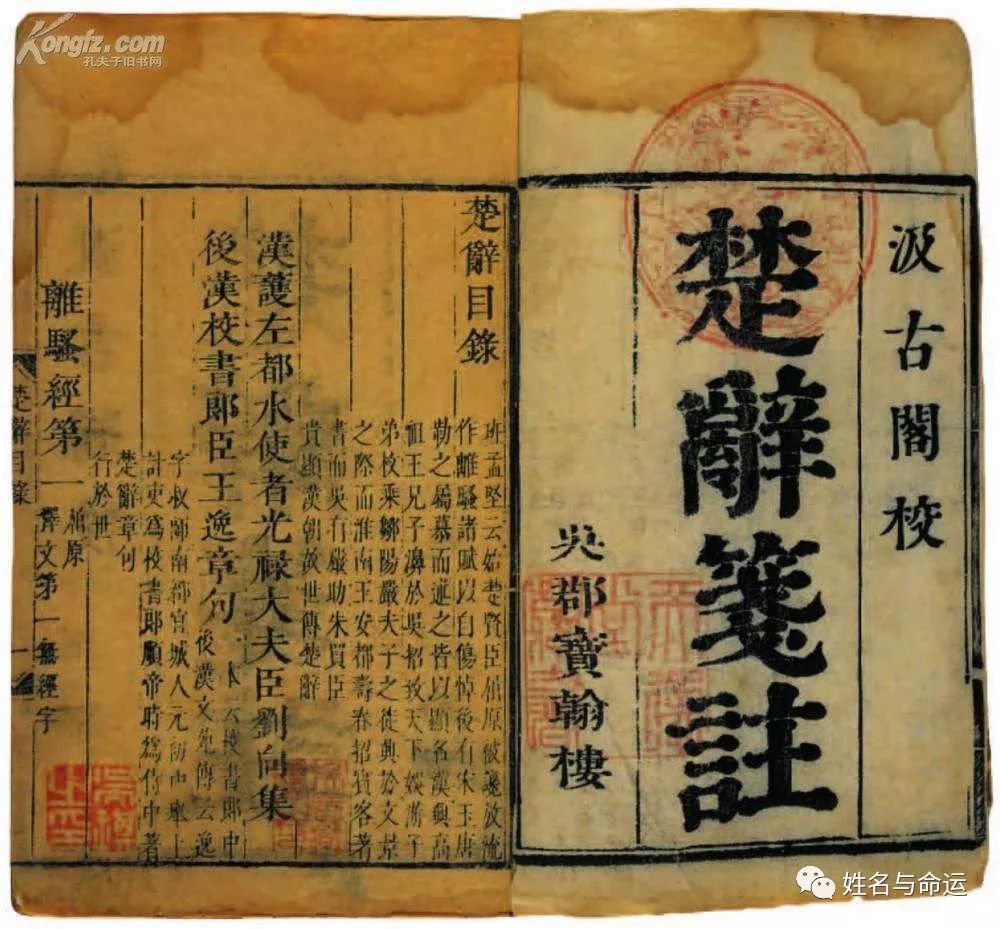 Kongfz.com
孔夫子旧书网
汲古閣校
楚辭箋註
吳郡寶翰樓
楚辭目錄
班孟堅云始楚賢臣屈原被讒放流
作離騷諸賦以自傷悼後有宋玉唐
勒之屬慕而述之皆以顯名漢興高
祖王兄子濞於吳招致天下娛游子
弟枚乘鄒陽嚴夫子之徒興於文景
之際而淮南王安都壽春招賓客著
書而吳有嚴助朱買臣
貴顯漢朝故世傳楚辭
漢護左都水使者光祿大夫臣劉向集
後漢校書郎臣王逸章句
後漢文苑傳云逸
字叔師南郡宜城人元初中舉上
計吏爲校書郎順帝時爲侍中著
楚辭章句
行於世
離騷經第一
屈原
釋文第一無經字
楚辭目錄
一
姓名与命运